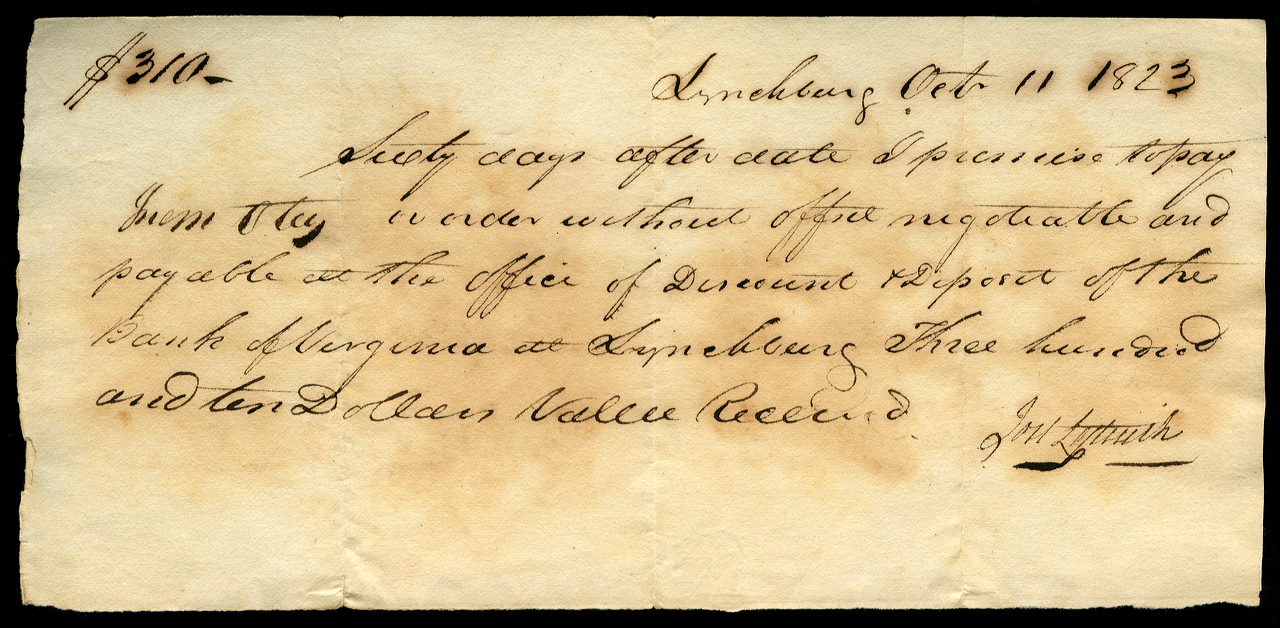 $310-
Lynchburg Octr 11 1823
Sixty days after date I promise to pay
Otey or order without offset negotiable and
payable at the office of Discount & Deposit of the
Bank of Virginia at Lynchburg Three hundred
and ten Dollars Value Received